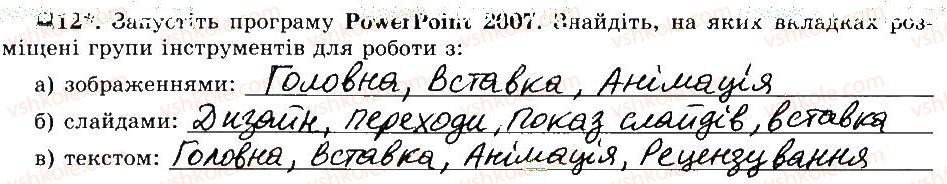 12*. Запустіть програму PowerPoint 2007. Знайдіть, на яких вкладках роз-
міщені групи інструментів для роботи з:
а) зображеннями: Головна, Вставка, Анімація
б) слайдами: Дизайн, переходи, показ слайдів, вставка
в) текстом: Головна, Вставка, Анімація, Рецензування